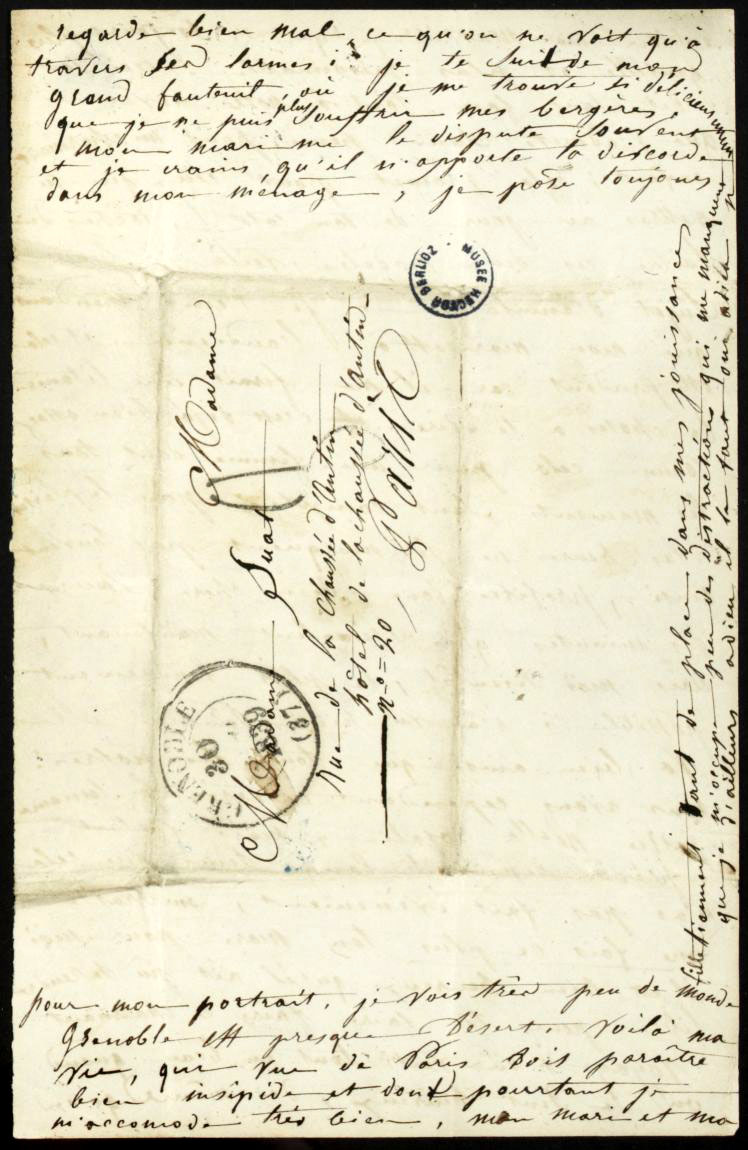 regarde bien mal ce qu'on ne voit qu'à
travers ses larmes : je te suis de mon
grand fauteuil, où je me trouve si délicieusement
que je ne puis plus souffrir mes bergères,
mon mari me le dispute souvent
et je crains qu'il n'apporte la discorde
dans mon ménage, je pose toujours
pour mon portrait. je vois très peu de monde
Grenoble est presque désert. Voilà ma
vie, qui vue de Paris doit paraître
bien insipide et dont pourtant je
m'accomode très bien, mon mari et ma
fille tiennent tant de place dans mes jouissances
que je m'occupe peu des distractions qui me manquent
d'ailleurs adieu il te faut
MUSEE HECTOR BERLIOZ
Madame
Madame Suat
rue de la Chaussée d'Antin
hôtel de la chaussée d'antin-
n°= 20
Paris
GRENOBLE
30
1839
(37)